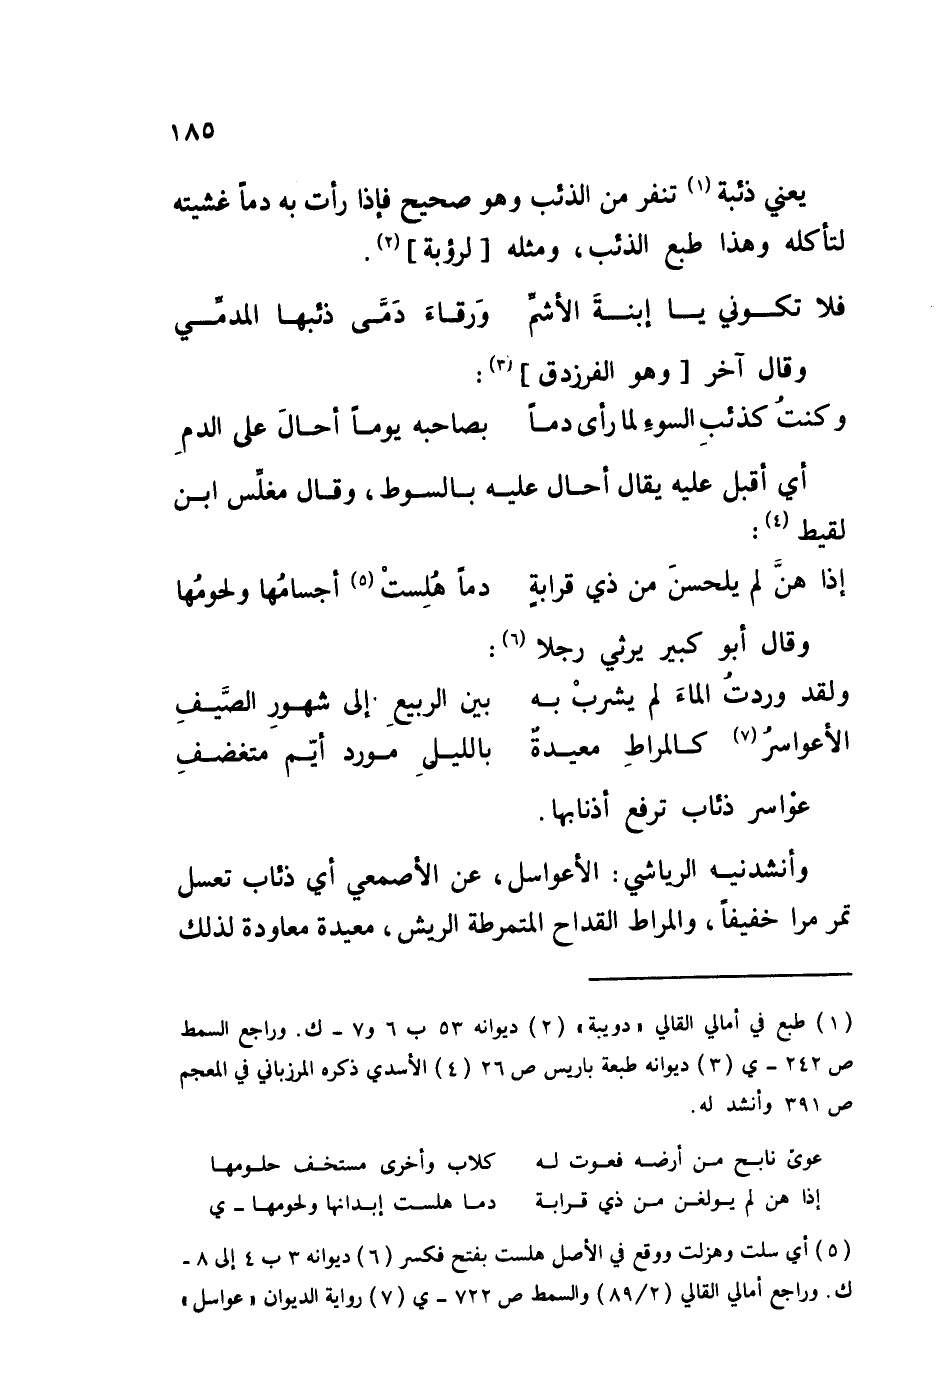 ١٨٥
يعني ذئبة (١) تنفر من الذئب وهو صحيح فإذا رأت به دماً غشيته
لتأكله وهذا طبع الذئب، ومثله [ لرؤبة ] (٢) .
فلا تكـــوني يـــا إبنـــةَ الأشمِّ    وَرقـاءَ دَمَّـى ذئبهـا المدمِّـــي
وقال آخر [ وهو الفرزدق ] (٣) :
وكنتُ كذئبِ السوءِ لما رأى دمـاً    بصاحبه يومـاً أحـالَ على الدمِ
أي أقبل عليه يقال أحـال عليـه بـالسـوط، وقـال مغلِّس ابـن
لقيط (٤) :
إذا هنَّ لم يلحسنَ من ذي قرابةٍ    دماً هُلِستْ (٥) أجسامُها ولحومُها
وقال أبو كبير يرثي رجلا (٦) :
ولقد وردتُ الماءَ لم يشربْ بـه    بين الربيعِ إلى شهـورِ الصَّيـفِ
الأعواسرُ (٧) كـالمراطِ معيـدةٌ    بالليـلِ مـورد أيّـم متغضـفِ
عوْاسر ذئاب ترفع أذنابها .
وأنشدنيـه الرياشي : الأعواسل، عن الأصمعي أي ذئاب تعسل
تمر مرا خفيفاً، والمراط القداح المتمرطة الريش، معيدة معاودة لذلك
(١) طبع في أمالي القالي « دويبة » (٢) ديوانه ٥٣ ب ٦ و٧ ـ ك. وراجع السمط
ص ٢٤٢ ـ ي (٣) ديوانه طبعة باريس ص ٢٦ (٤) الأسدي ذكره المرزباني في المعجم
ص ٣٩١ وأنشد له.
عوىْ نابـح مـن أرضـه فعـوت لـه    كلاب وأخرى مستخـف حلـومهـا
إذا هن لم يـولغـن مـن ذي قـرابـة    دمـا هلسـت إبـدانها ولحومهـا ـ ي
(٥) أي سلت وهزلت ووقع في الأصل هلست بفتح فكسر (٦) ديوانه ٣ ب ٤ إلى ٨ ـ
ك. وراجع أمالي القالي (٨٩/٢) والسمط ص ٧٢٢ ـ ي (٧) رواية الديوان « عواسل »